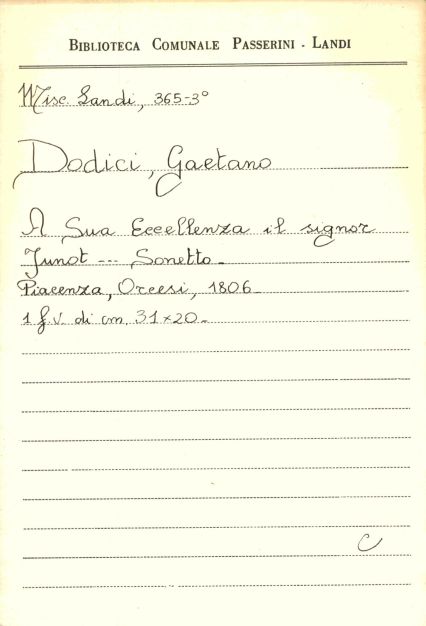 BIBLIOTECA COMUNALE PASSERINI - LANDI
Misc. Landi, 365-3°
Dodici, Gaetano
A Sua Eccellenza il signor
Junot --- Sonetto.
Piacenza, Orcesi, 1806.
1 f.v. di cm. 31×20.
C